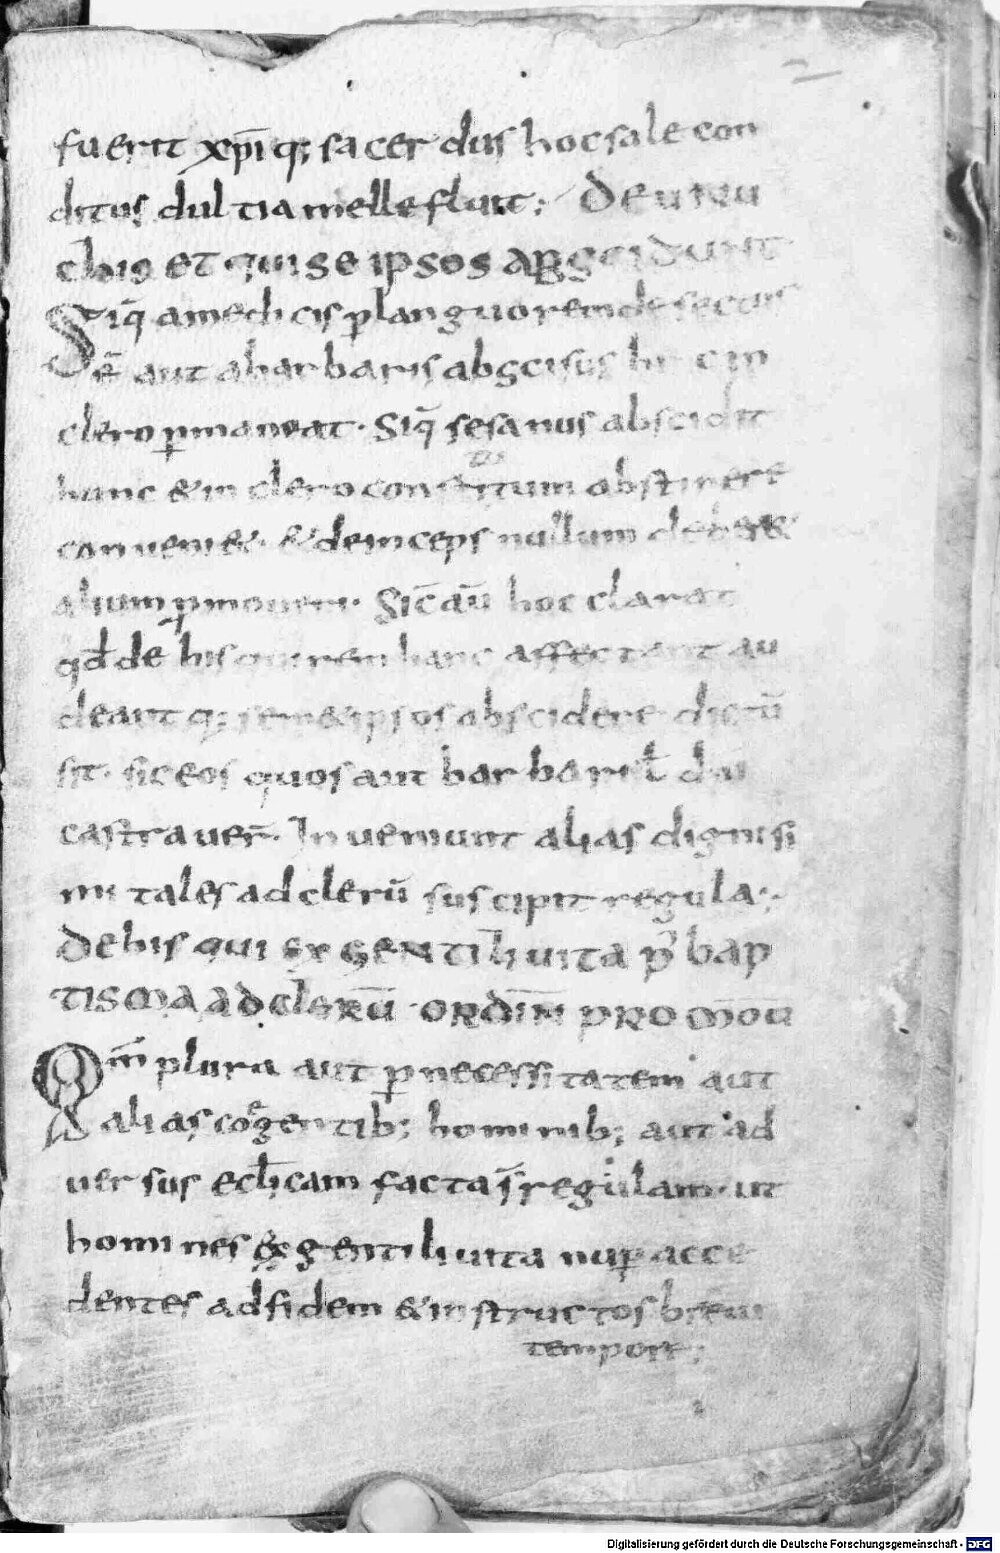 fuerit xp̄iq; sacerdus hoc sale con
ditus dultia melle fluit; De eunu
chis et qui se ipsos abscidunt
Siq̄ a medicis p̱ languorem desectus
ē aut a barbaris abscisus hic in
clero p̱maneat. Siq̄ se sanus abscidit
hunc & in clero constitutum abstinere
conueni&. & deinceps nullum deb&
alium p̱moueri. Sic̄ aū hoc clarat
qd̄ de his qui rem hanc affectant au
deantq; sem&ipsos abscidere dictū
sit. sic eos quos aut barbari ł dn̄i
castrauer̄. Inueniunt alias dignissi
mi tales ad clerū suscipit regula;
De his qui ex gentili uita p̄ bap
tisma ad clerū ordin̄ promou̅
Qm̄ plura aut p̱ necessitatem aut
alias cogentib; hominib; aut ad
uersus eccl̄icam facta s̄ regulam. ut
homines ex gentili uita nup̱ acce
dentes ad fidem & instructos breui
tempore;
Digitalisierung gefördert durch die Deutsche Forschungsgemeinschaft - DFG